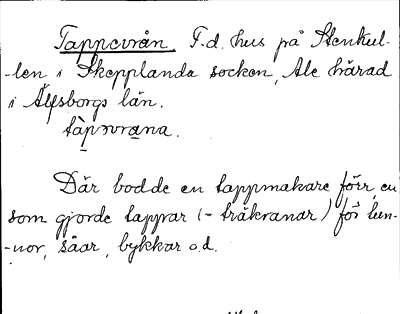 Tappevrån. F.d. hus på Stenkul-
-len i Skepplanda socken, Ale härad
i Älfsborgs län.
tàpɔvrana.
Där bodde en tappmakare förr, en
som gjorde tappar (= träkranar) för tun-
-nor, såar, bykkar o.d.